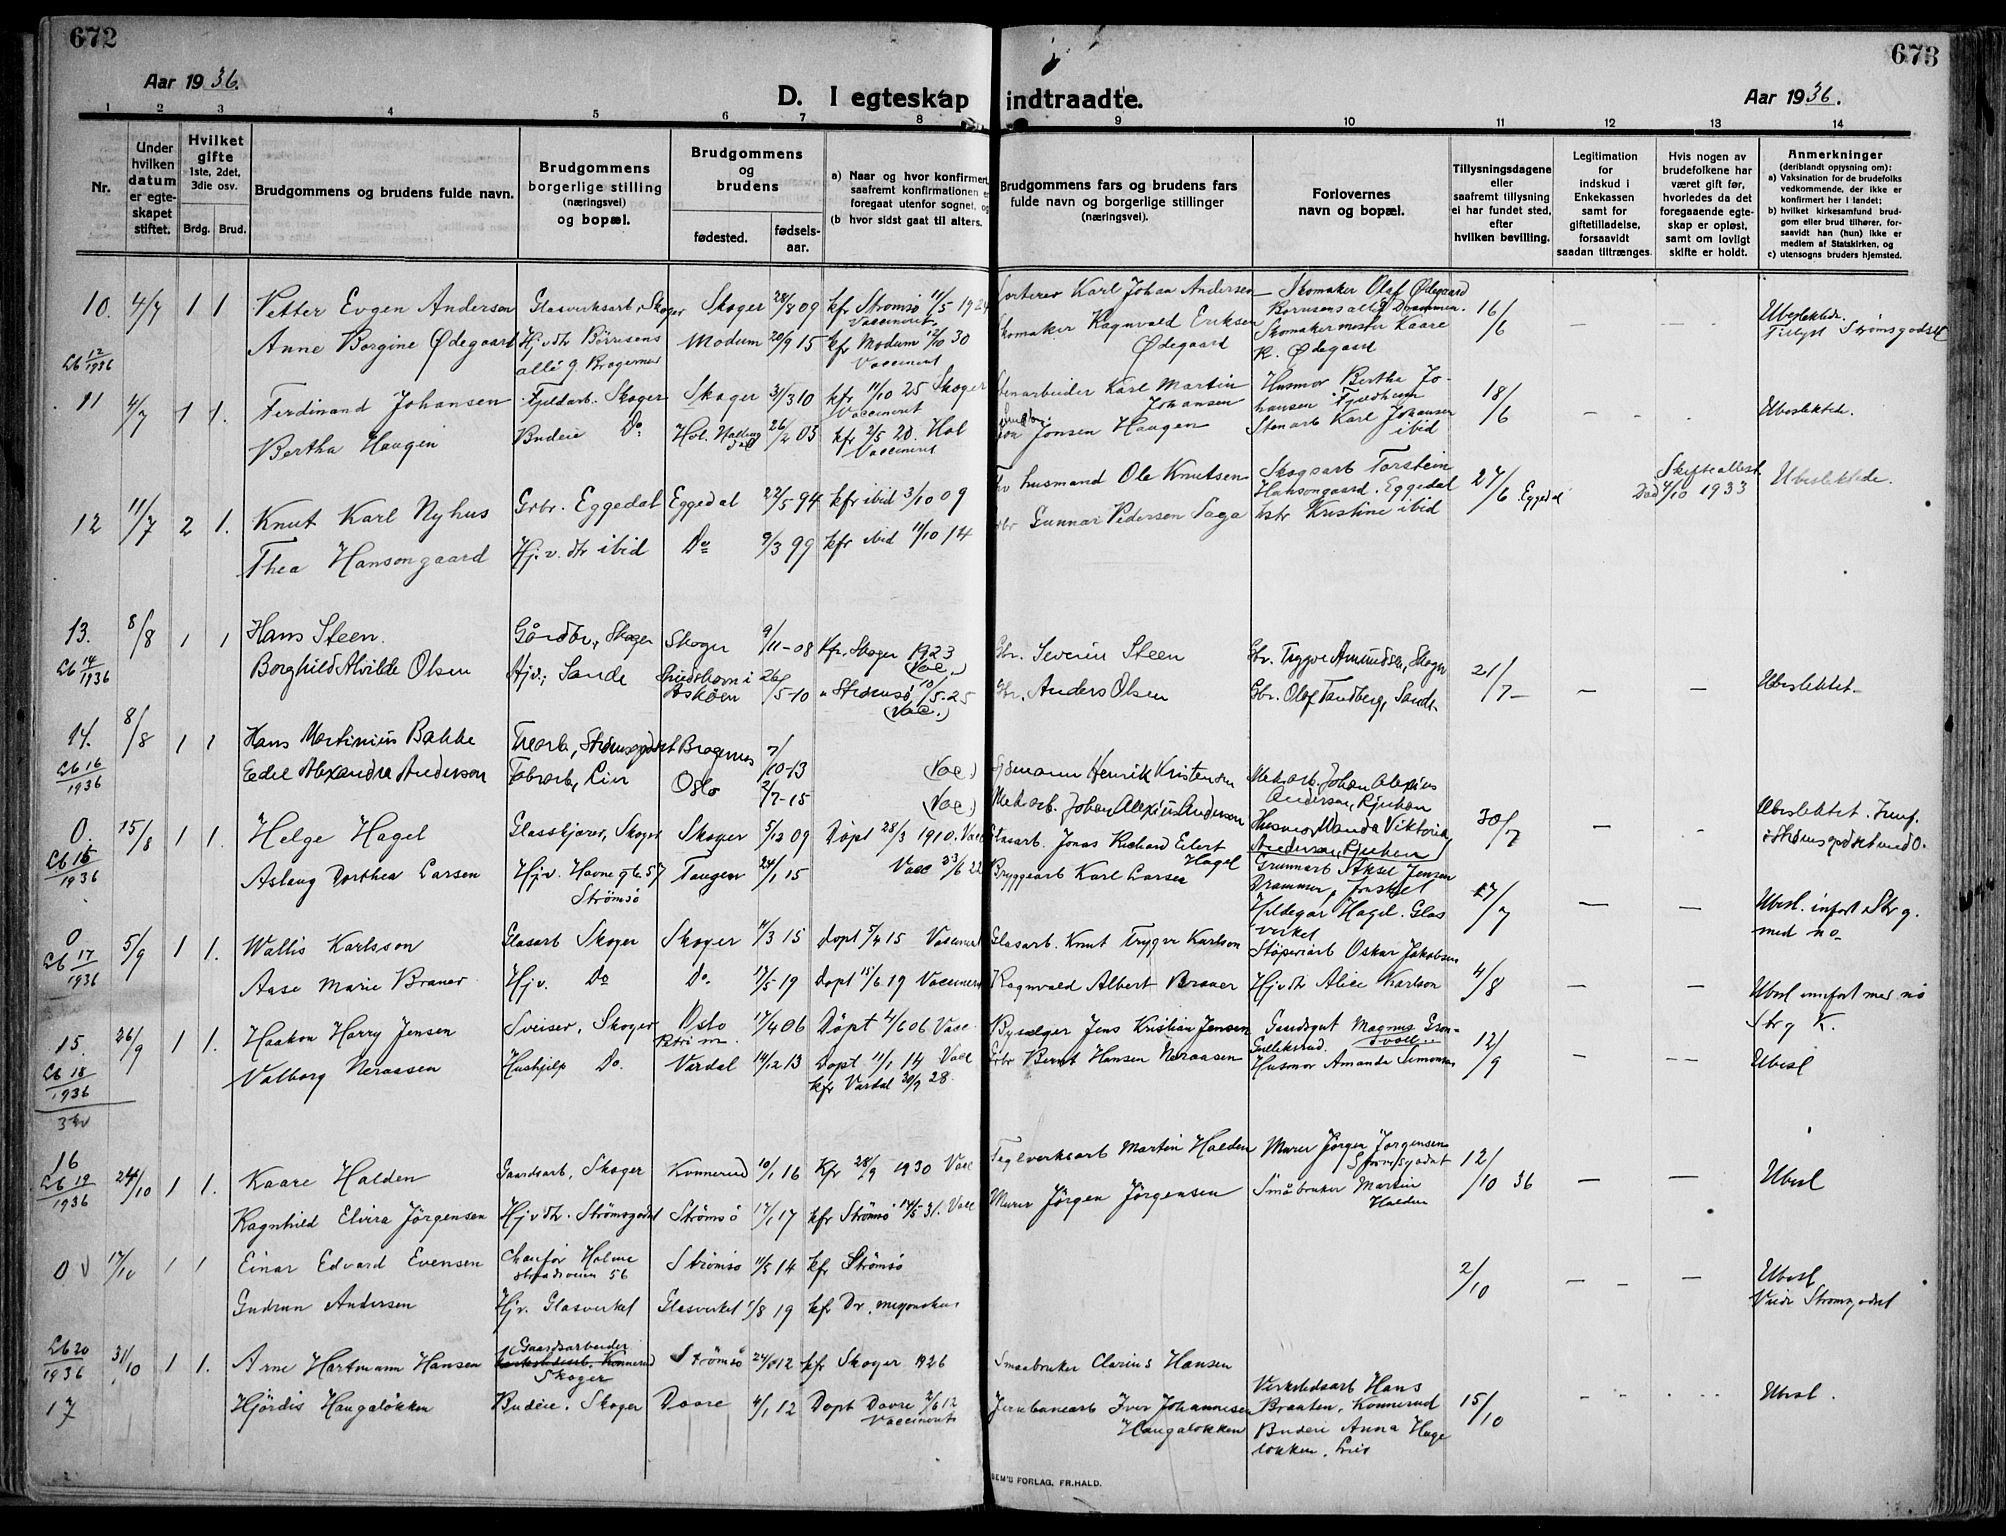 672
673
Aar 1936.
D. I egteskap indtraadte.
Aar 1936.
1 2 3 4 5 6 7 8 9 10 11 12 13 14
Nr.
Under hvilken datum er egteskapet stiftet.
Hvilket gifte 1ste, 2det, 3die osv.
Brdg. Brud.
Brudgommens og brudens fulde navn.
Brudgommens borgerlige stilling (næringsvei) og bopæl.
Brudgommens og brudens
fødested.
fødselsaar.
a) Naar og hvor konfirmert, saafremt konfirmationen er foregaat utenfor sognet, og
(b hvor sidst gaat til alters.
Brudgommens fars og brudens fars fulde navn og borgerlige stillinger (næringsvei).
Forlovernes navn og bopæl.
Tillysningsdagene eller saafremt tillysning ei har fundet sted, efter hvilken bevilling.
Legitimation for indskud i Enkekassen samt for giftetilladelse, forsaavidt saadan tiltrænges.
Hvis nogen av brudefolkene har været gift før, hvorledes da det foregaaende egteskap er opløst, samt om lovligt skifte er holdt.
Anmerkninger (deriblandt opysning om):
a) Vaksination for de brudefolks vedkommende, der ikke er konfirmert her i landet;
b) hvilket kirkesamfund brudgom eller brud tilhører, forsaavidt han (hun) ikke er medlem af Statskirken, og
c) utensogns bruders hjemsted.
10. 4/7 1 1 Petter Evgen Andersen Glasverksarb. Skoger Skoger 28/8 09 kfr Strømsø 11/5 1924 Karl Johan Andersen Skomaker Olaf Ødegaard 16/6 – – – Ubeslektede.
Vaccinert.
Lb 12/1936 Anne Borgine Ødegaard Hj.v dtr Børresens alle 9 Bragernes Modum 20/9 15 kfr Modum 12/10 30 Skomaker Ragnvald Eriksen Ødegaard Skomakermester Kaare R. Ødegaard
Vaccinert
11 4/7 1 1. Ferdinand Johansen Fjeldarb. Skoger Skoger 31/3 10 kfr 11/10 25 Skoger Stenarbeider Karl Martin Johansen Husmor Bertha Johansen 18/6 Ubeslektede.
Vaccinert
Bertha Haugen Budeie Do Hol. Hallingdal 26/2 03 kfr 2/5 20. Hol Jonsen Haugen Stenarb Karl Johansen ibid
Vaccinert
12 11/7 2 1. Knut Karl Nyhus Grbr. Eggedal Eggedal 22/5 94 kfr ibid 3/10 09 husmand Ole Knutsen Skogsarb Torstein Hansongaard. Eggedal 27/6 Eggedal Skifteattest 4/10 1933 Ubeslektede.
Thea Hansongaard Hj.v. dtr ibid Do 9/3 99 kfr ibid 11/10 14 Gunnar Pedersen Saga hstr Kristine ibid
13. 8/8 1 1 Hans Steen. Gårdbr., Skoger Skoger 9/11-08 Kfr. Skoger 1923 (Vac.) Gbr. Severin Steen Gbr. Trygve Amundsen, Skoger 21/7 – – – Ubeslektet
Lb 14/1936 Borghild Alvilde Olsen Hjv., Sande 26/5-10 " Strømsø 10/5-25 (Vac.) Gbr. Anders Olsen Gbr. Olaf Tandberg, Sande
14. 8/8 1 1 Hans Martinius Bakke Strømsgodset Bragernes 7/10-13 (Vac.) Sjømann Henrik Kristensen Mek. arb. Johan Alexius Andersen, Rjukan 30/7 – – Ubeslektet.
Lb 16/1936 Edel Alexandra Andersen Fabrarb., Lier Oslo 2/7-15 (Vac.) Mek. arb. Johan Alexius Andersen Husmor Wanda Viktoria Andersen, Rjukan
0. 15/8 1 1. Helge Hagel Glasskjærer, Skoger Skoger 5/12 09 Døpt 28/3 1910. Vacc Glasarb. Jonas Richard Eilert Hagel Grunnarb Aksel Jensen Drammen 17/7 – – Ubesl.
Lb 15/1936 Aslaug Dorthea Larsen Hj.v. Havnegt. 57 Strømsø Tangen 24/1 15 Vacc 23/6 22 Bryggearb Karl Larsen Hildegar Hagel. Glasverket
0 Lb 17/1936 5/9 1 1. Wallis Karlsson Glasarb Skoger Skoger 11/3 15 Døpt 5/4 15 Vaccinert Glasarb. Knut Trygve Karlson Støperiarb Oskar Jakobsen 4/8 – –
Aase Marie Braner Hj.v. Do Do. 17/5 19 Døpt 15/6 19 Vaccinert Ragnvald Albert Braner Hj.v dtr Alice Karlson
15. 26/9 1 1. Haakon Harry Jensen Sveiser, Skoger Oslo 17/4 06 Døpt 4/6 06 Vacc Jens Kristian Jensen Gaardsgut Magnus 12/9 – –– Ubesl
Lb 18/1936 Valborg Neraasen Hushjelp Do. Vardal 14/12 13 Døpt 11/1 14 Vacc Gbr Bernt Hansen Neraasen Husmor Amanda Simonsen
kfr Vardal 30/9 28.
16 Lb 19/1936 24/10 1 1. Kaare Halden Gaardsarb, Skoger Konnerud 10/1 16 Kfr 28/9 1930 Vacc Teglverksarb Martin Halden Murer Jørgen Jørgensen Strømsgodset 12/10 36 – – Ubesl
Ragnhild Elvira Jörgensen Hj.v dtr. Strømsgodset Strømsø 17/1 17 kfr Strømsø 14/5 31. Vacc Murer Jörgen Jörgensen Småbruker Martin Halden
0 17/10 1 1 Einar Edvard Evensen Chaufør Holmestrandsveien 56 Strømsø 11/5 14 kfr Strømsø 2/10 – – – Ubesl
Gudrun Andersen Hj.v. Glasverket Glasverket 1/8 19 kfr Dr. Strømsgodset
Lb 20/1936 31/10 1 1. Arne Hartmann Hansen Gaardsarbeider Skoger Strømsø 12 kfr Skoger 1926 Smaabruker Clarius Hansen Verkstedsarb Hans Braaten, Konnerud 15/10 Ubesl.
17 Hjördis Haugaløkken Budeie. Skoger Dovre 4/1 12 Døpt Dovre 2/6 12 Vaccinert Jernbanearb Iver Johannesen Haugaløkken Budeie Anna Haugaløkken, Lier
SEM'S FORLAG, FR.HALD.